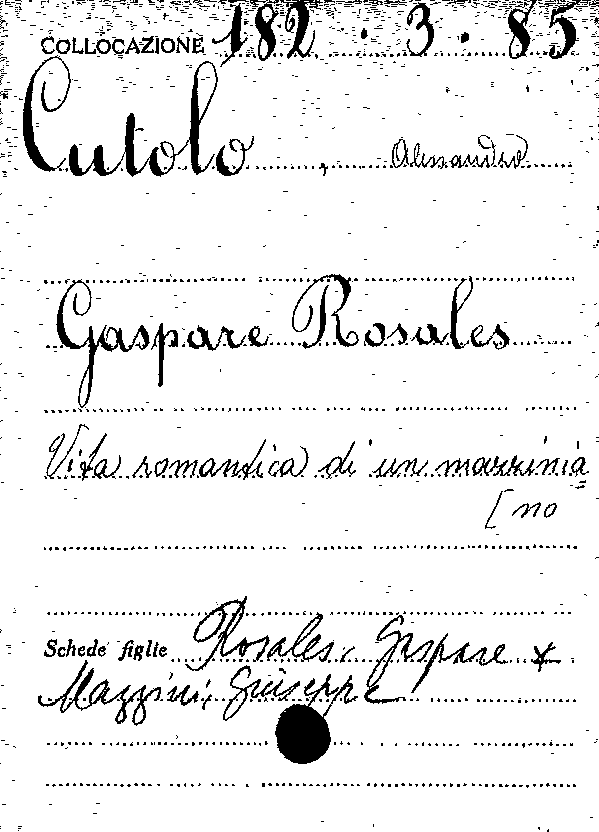 COLLOCAZIONE 182 . 3 . 85
Cutolo, Alessandro
Gaspare Rosales
Vita romantica di un mazzinia=
[no
Schede figlie Rosales, Gaspare *
Mazzini, Giuseppe